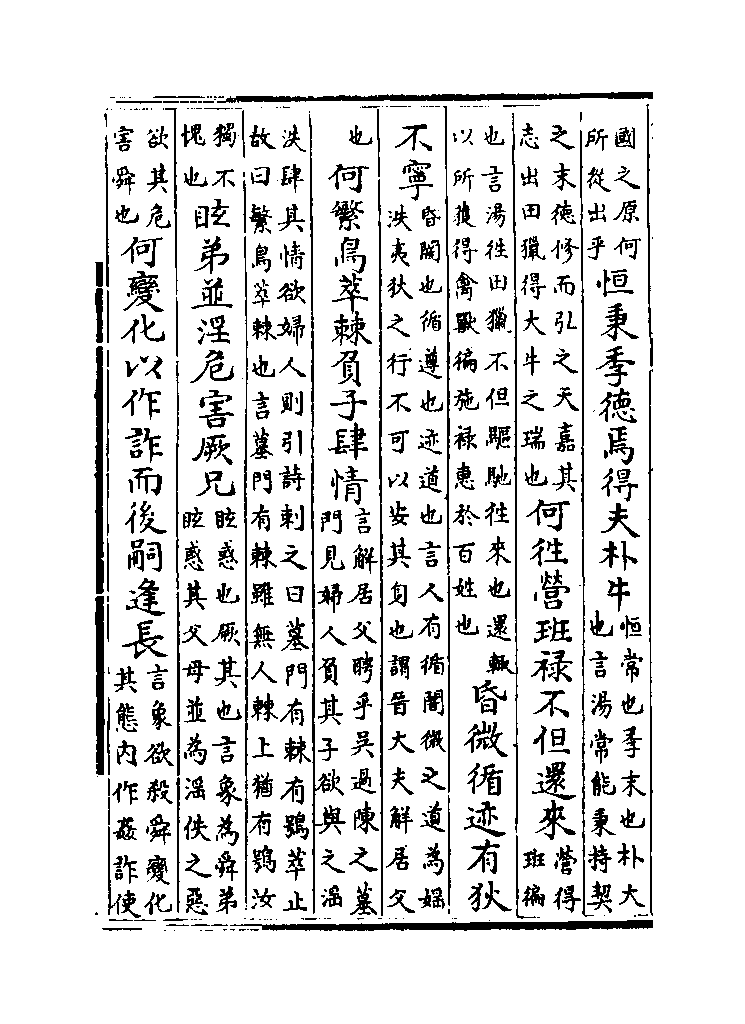 國之原何
所從出乎
恒秉季德焉得夫朴牛
恒常也季末也朴大
也言湯常能秉持契
之末德修而弘之天嘉其
志出田獵得大牛之瑞也
何徃營班禄不但還來
營得
班徧
也言湯徃田獵不但驅馳徃來也還輙
以所獲得禽獸徧施禄惠於百姓也
昏微循迹有狄
不寧
昏闇也循遵也迹道也言人有循闇微之道為婬
泆夷狄之行不可以安其身也謂晉大夫解居父
也
何繁鳥萃棘負子肆情
言解居父聘乎吳過陳之墓
門見婦人負其子欲與之淫
泆肆其情欲婦人則引詩刺之曰墓門有棘有鴞萃止
故曰繁鳥萃棘也言墓門有棘雖無人棘上猶有鴞汝
獨不
愧也
眩弟並淫危害厥兄
眩惑也厥其也言象為舜弟
眩惑其父母並為淫佚之惡
欲其危
害舜也
何變化以作詐而後嗣逢長
言象欲殺舜變化
其態内作姦詐使